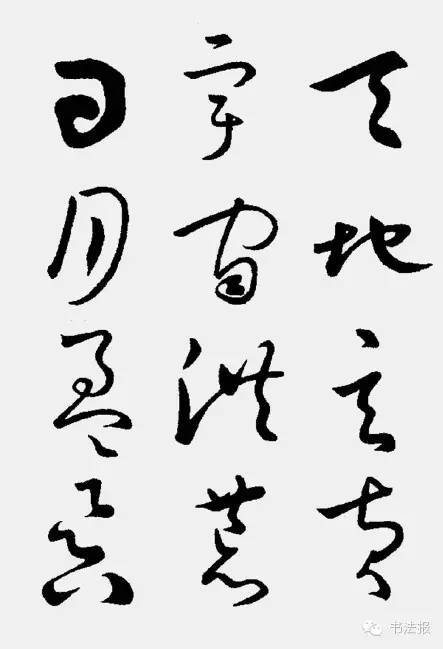 天地玄黄
宇宙洪荒
日月盈昃
书法报